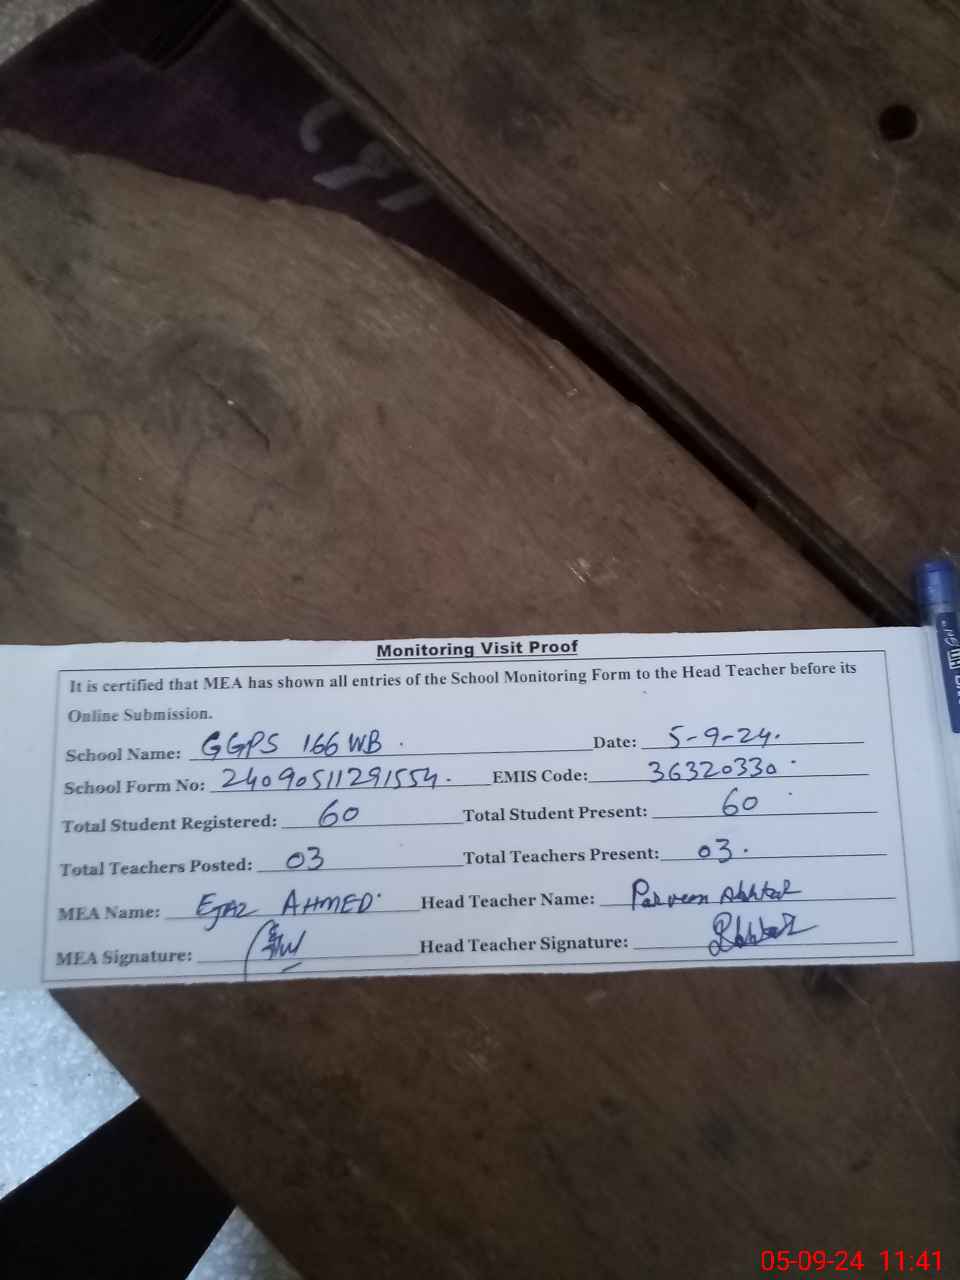 Monitoring Visit Proof
It is certified that MEA has shown all entries of the School Monitoring Form to the Head Teacher before its
Online Submission.
School Name: GGPS 166 WB. Date: 5-9-24.
School Form No: 24090511291554. EMIS Code: 36320330.
Total Student Registered: 60 Total Student Present: 60
Total Teachers Posted: 03 Total Teachers Present: 03.
MEA Name: EJAZ AHMED. Head Teacher Name: Parveen Akhtar
MEA Signature: Head Teacher Signature:
05-09-24 11:41